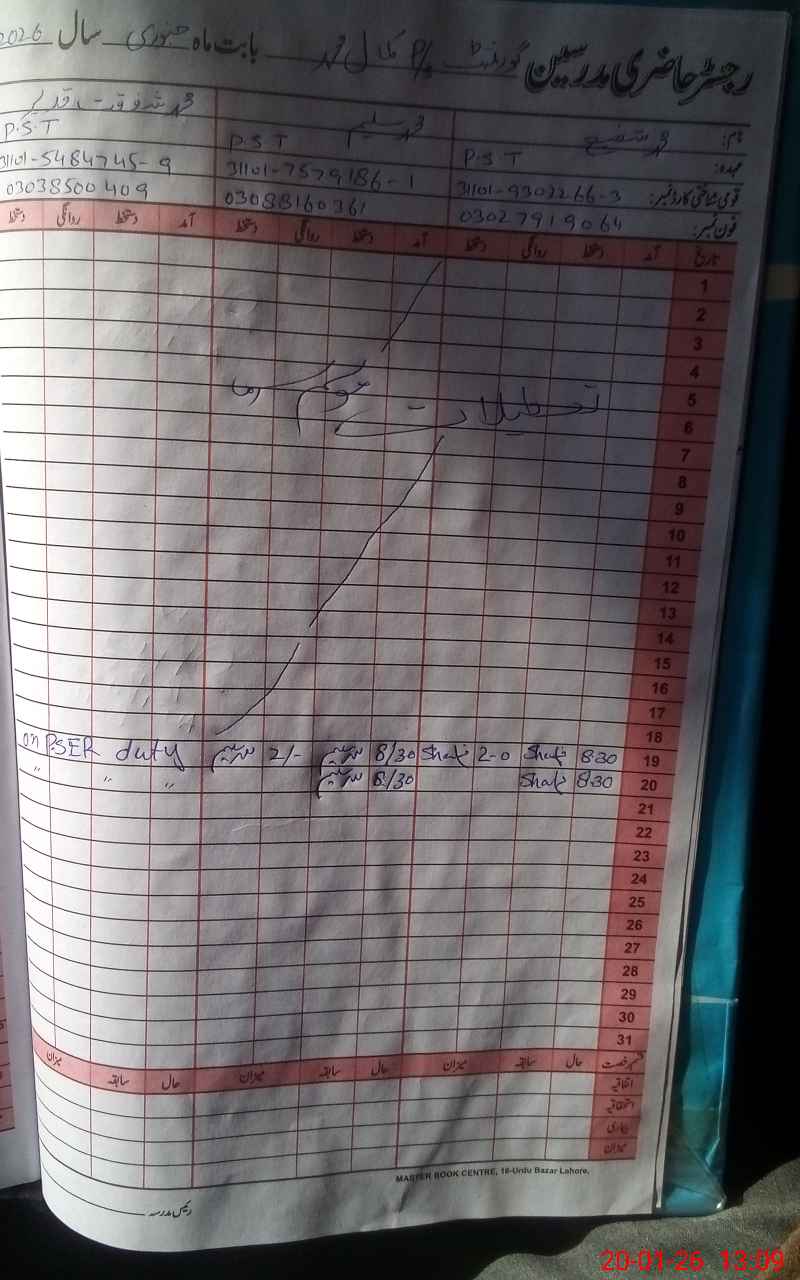 رجسٹر حاضری مدرسین گورنمنٹ P/S جمال محمد بابت ماہ جنوری سال 2026
نام: محمد شفیع محمد سلیم محمد شفقت
عہدہ: P.S.T P.S.T P.S.T
قومی شناختی کارڈ نمبر: 31101-9302266-3 31101-7579186-1 31101-5484745-9
فون نمبر: 03027919064 03088160361 03038500409
تاریخ آمد دستخط روانگی دستخط آمد دستخط روانگی دستخط آمد دستخط روانگی دستخط
1
2
3
4
5
تعطیلات موسم سرما
6
7
8
9
10
11
12
13
14
15
16
17
18
19 8:30 Shafi 2-0 Shafi 8/30 سلیم 2/- سلیم on PSER duty
20 8:30 Shafi 8/30 سلیم " " "
21
22
23
24
25
26
27
28
29
30
31
قسم رخصت حال سابقہ میزان حال سابقہ میزان حال سابقہ میزان
اتفاقیہ
استحقاقیہ
بیماری
میزان
MASTER BOOK CENTRE, 16-Urdu Bazar Lahore.
رئیس مدرسہ
20-01-26 13:09